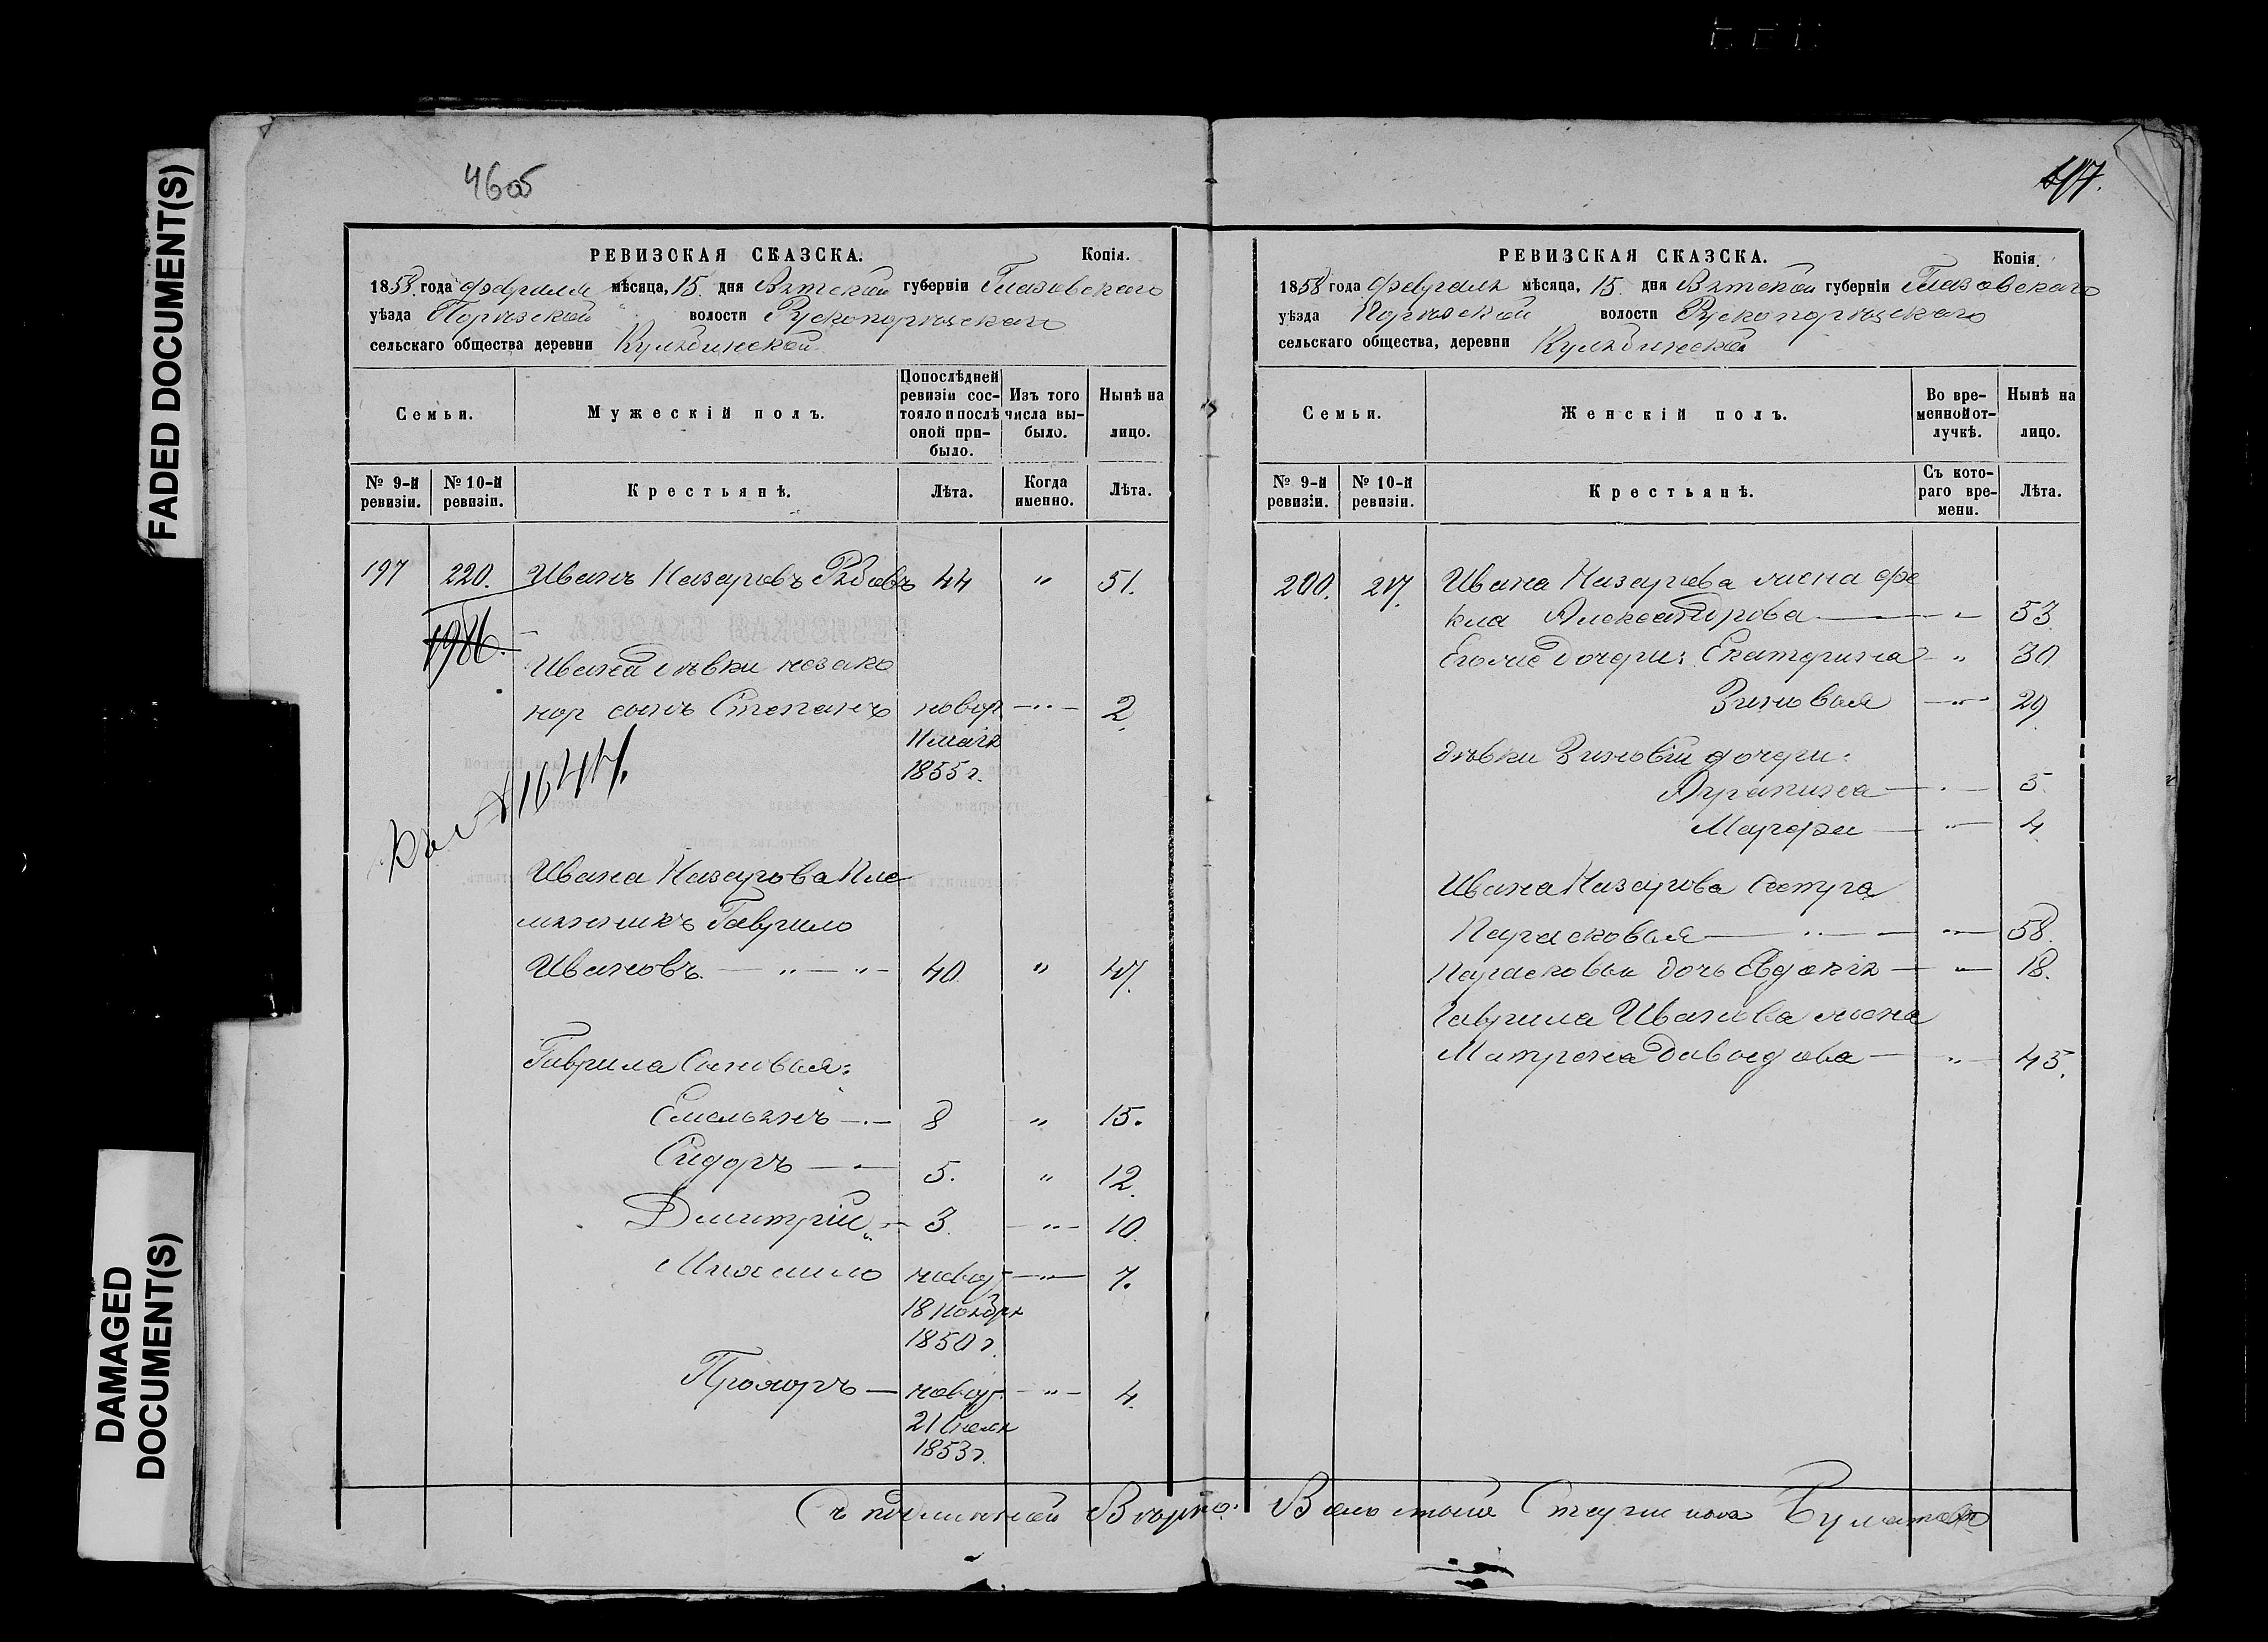 FADED DOCUMENT(S)
DAMAGED
DOCUMENT(S)
46об
47.
РЕВИЗСКАЯ СКАЗСКА. Копія.
1858 года февраля мѣсяца, 15 дня Вятской губерніи Глазовского
уѣзда Порѣзской волости Рускопорѣцского
сельскаго общества деревни
Семьи.
Мужескій полъ.
Попослѣдней ревизіи состояло и послѣ оной прибыло.
Изъ того числа выбыло.
Нынѣ на лицо.
№ 9-й ревизіи.
№ 10-й ревизіи.
Крестьянѣ.
Лѣта.
Когда именно.
Лѣта.
197 220. Иванъ Назаровъ Рябовъ 44 " 51.
1986.
Ивана дѣвки незако
нор сынъ Степанъ новор. — " — 2.
11 маія
1855 г.
Ивана Назарова Пле
мянникъ Гаврило
Ивановъ — " — " — 40 " 47.
Гаврила Сыновья:
Емельянъ — 8 " 15.
Сидоръ — 5. " 12.
Дмитрій " — 3. — " — 10.
Михаило новор. — " — 7.
18 ноября
1850 г.
Прохоръ — новор. — " — 4.
21
1853 г.
РЕВИЗСКАЯ СКАЗСКА. Копія.
1858 года февраля мѣсяца, 15 дня Вятской губерніи Глазовского
уѣзда Порѣзской волости Рускопорѣцского
сельскаго общества, деревни
Семьи.
Женскій полъ.
Во временной отлучкѣ.
Нынѣ на лицо.
№ 9-й ревизіи.
№ 10-й ревизіи.
Крестьянѣ.
Съ котораго времени.
Лѣта.
200. 217. Ивана Назарова жена Фе
кла Александрова — " — 53
Егоже дочери: Екатерина — " 30
Зиновья — " — 29
дѣвки Зиновіи дочери:
Агрипина — " — 5.
Марфа — " — 4
Ивана Назарова Сестра
Парасковья — " — " — 58.
Парасковьи дочь Евдокія — " — 18.
Гаврила Иванова жена
Матрена Давыдова — " — 45.
Съ подлинной Вѣрно: Волостной Старшина